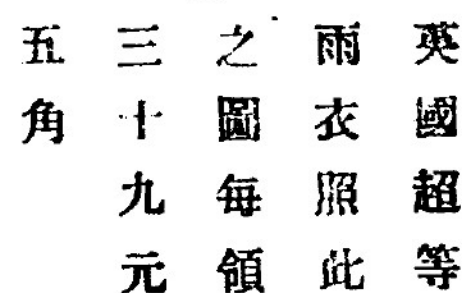 英國超等
雨衣照此
之圖每領
三十九元
五角